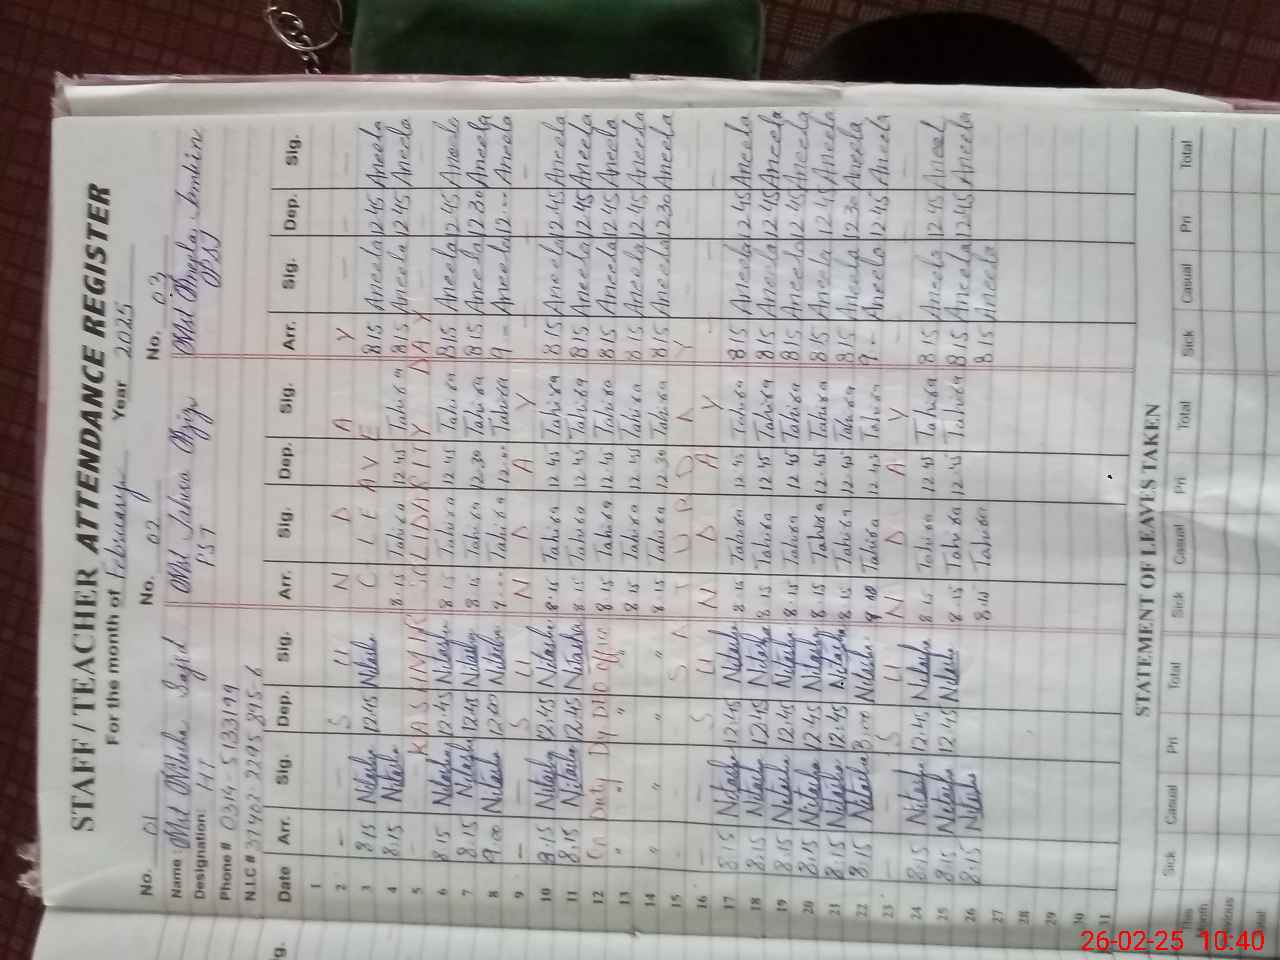 STAFF / TEACHER ATTENDANCE REGISTER
For the month of February Year 2025
No. 01 No. 02 No. 03
Name: Tahira
Designation: HT PST PST
Phone # 0314-5133199
N.I.C #
Date Arr. Sig. Dep. Sig. Arr. Sig. Dep. Sig. Arr. Sig. Dep. Sig.
1
2 S U N D A Y
3 8:15 Nitasha 12:45 Nitasha C L E A V E 8:15 Aneela 12:45 Aneela
4 8:15 Nitasha 8:15 Tahira 12:45 Tahira 8:15 Aneela 12:45 Aneela
5 KASHMIR SOLIDARITY DAY
6 8:15 Nitasha 12:45 Nitasha 8:15 Tahira 12:45 Tahira 8:15 Aneela 12:45 Aneela
7 8:15 Nitasha 12:45 Nitasha 8:15 Tahira 12:30 Tahira 8:15 Aneela 12:30 Aneela
8 9:00 Nitasha 12:00 Nitasha 9 Tahira 12 Tahira 9 Aneela 12 Aneela
9 S U N D A Y
10 8:15 Nitasha 12:45 Nitasha 8:15 Tahira 12:45 Tahira 8:15 Aneela 12:45 Aneela
11 8:15 Nitasha 12:45 Nitasha 8:15 Tahira 12:45 Tahira 8:15 Aneela 12:45 Aneela
12 On Duty 8:15 Tahira 12:45 Tahira 8:15 Aneela 12:45 Aneela
13 " " " " 8:15 Tahira 12:45 Tahira 8:15 Aneela 12:45 Aneela
14 " " " " 8:15 Tahira 12:30 Tahira 8:15 Aneela 12:30 Aneela
15
16 S U N D A Y
17 8:15 Nitasha 12:45 Nitasha 8:15 Tahira 12:45 Tahira 8:15 Aneela 12:45 Aneela
18 8:15 Nitasha 12:45 Nitasha 8:15 Tahira 12:45 Tahira 8:15 Aneela 12:45 Aneela
19 8:15 Nitasha 12:45 Nitasha 8:15 Tahira 12:45 Tahira 8:15 Aneela 12:45 Aneela
20 8:15 Nitasha 12:45 Nitasha 8:15 Tahira 12:45 Tahira 8:15 Aneela 12:45 Aneela
21 8:15 Nitasha 12:45 Nitasha 8:15 Tahira 12:45 Tahira 8:15 Aneela 12:30 Aneela
22 8:15 Nitasha Nitasha Tahira 12:45 Tahira 9 Aneela 12:45 Aneela
23 S U N D A Y
24 8:15 Nitasha 12:45 Nitasha 8:15 Tahira 12:45 Tahira 8:15 Aneela 12:45 Aneel
25 8:15 Nitasha 12:45 Nitasha 8:15 Tahira 12:45 Tahira 8:15 Aneela 12:45 Aneela
26 8:15 Nitasha 8:15 Tahira 8:15 Aneela
27
28
29
30
31
STATEMENT OF LEAVES TAKEN
Sick Casual Pri Total Sick Casual Pri Total Sick Casual Pri Total
This Month
26-02-25 10:40